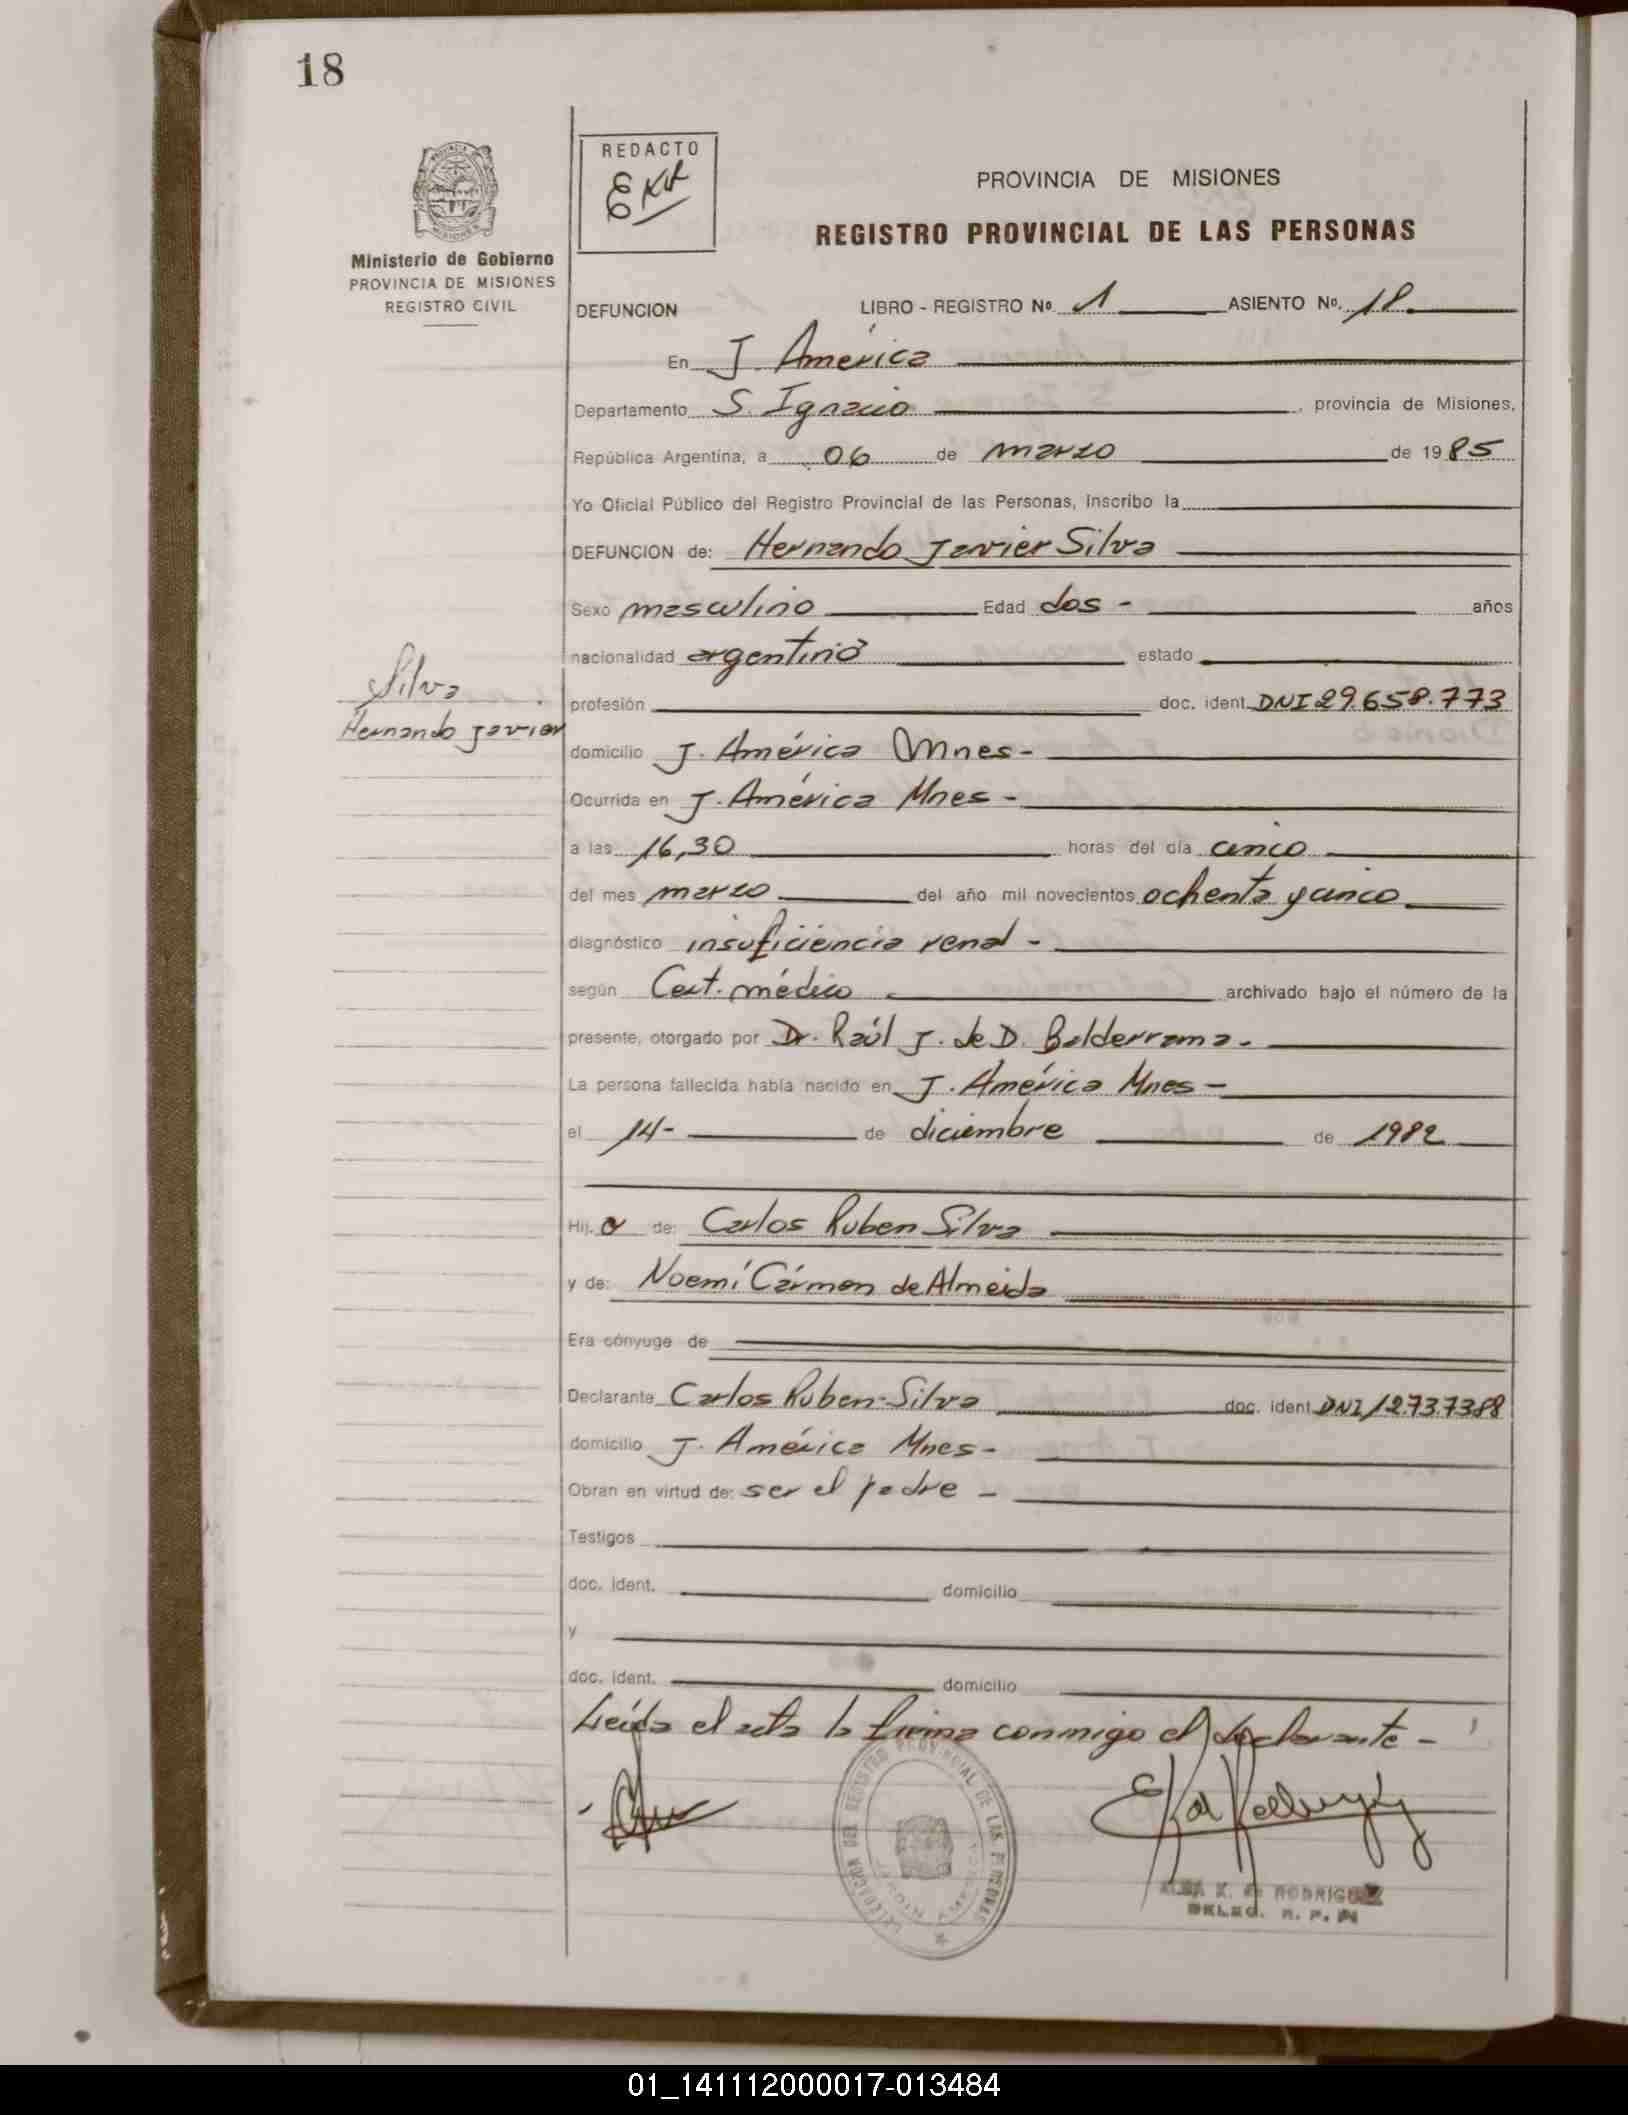 18
REDACTO
EKR
PROVINCIA DE MISIONES
REGISTRO PROVINCIAL DE LAS PERSONAS
Ministerio de Gobierno
PROVINCIA DE MISIONES
REGISTRO CIVIL
DEFUNCION LIBRO - REGISTRO Nº 1 ASIENTO Nº. 18
En J. América
Departamento S. Ignacio, provincia de Misiones,
República Argentina, a 06 de marzo de 1985
Yo Oficial Público del Registro Provincial de las Personas, inscribo la
DEFUNCION de: Hernando Javier Silva
Sexo masculino Edad dos - años
nacionalidad argentino estado
Silva
Hernando Javier
profesión doc. ident. DNI 29.658.773
domicilio J. América Mnes -
Ocurrida en J. América Mnes -
a las 16,30 horas del día cinco
del mes marzo del año mil novecientos ochenta y cinco
diagnóstico insuficiencia renal -
según Cert. médico archivado bajo el número de la
presente, otorgado por Dr. Raúl J. de D. Balderrama -
La persona fallecida había nacido en J. América Mnes -
el 14 - de diciembre de 1982
Hij. o de: Carlos Ruben Silva
y de: Noemí Cármen de Almeida
Era cónyuge de
Declarante Carlos Ruben Silva doc. ident. DNI 12.737.388
domicilio J. América Mnes -
Obran en virtud de: ser el padre -
Testigos
doc. ident. domicilio
y
doc. ident. domicilio
Leída el acta la firma conmigo el declarante -
DELEGACION DEL REGISTRO PROVINCIAL DE LAS PERSONAS
JARDIN AMERICA
ALBA K. RODRIGUEZ
DELEG. R. P. P.
01_141112000017-013484